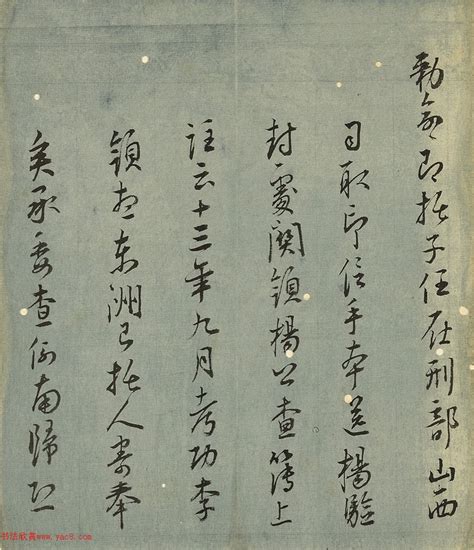 勅命即托子任在刑部山西
司取印信手本送楊驗
封處関領楊公查簿上
註云十三年九月考功李
領想東洲已托人寄奉
矣承委查例南歸
书法欣赏www.yac8.com